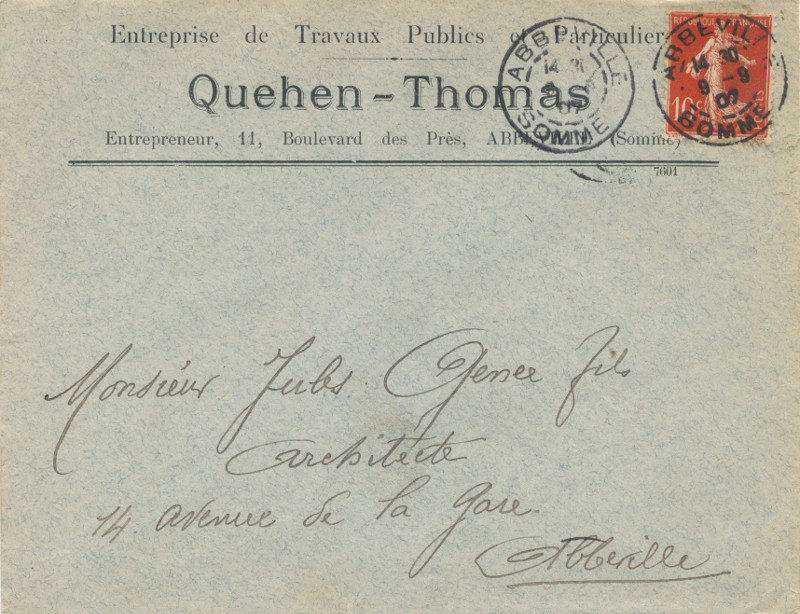 Entreprise de Travaux Publics et Particuliers
Quehen-Thomas
Entrepreneur, 11, Boulevard des Près, ABBEVILLE (Somme)
7601
ABBEVILLE
SOMME
REPUBLIQUE FRANÇAISE
10 c.
ABBEVILLE
14 30
9 -9
07
SOMME
Monsieur Jules Gense fils
Architecte
14. avenue de la Gare.
Abbeville